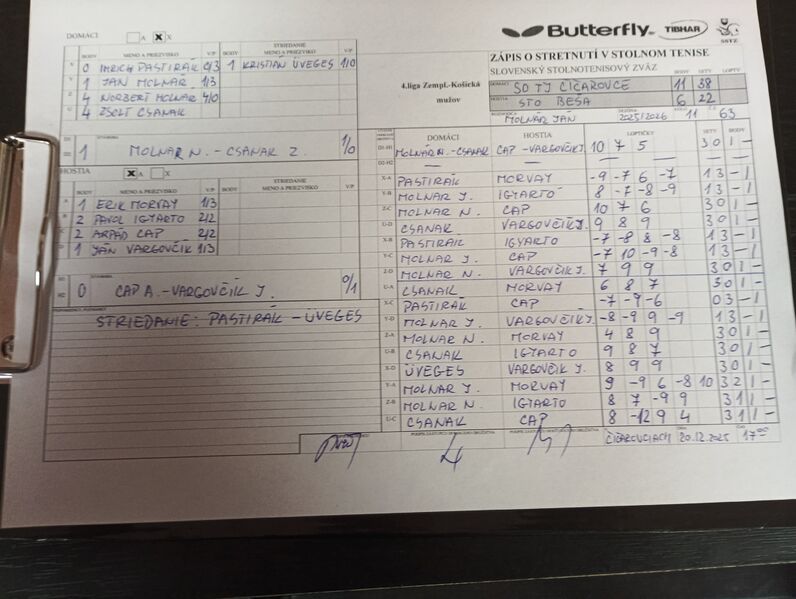 DOMÁCI A X X
BODY MENO A PRIEZVISKO V/P BODY STRIEDANIE MENO A PRIEZVISKO V/P
0 IMRICH PASTIRÁK 0/3 1 KRISTIÁN ÜVEGES 1/0
1 JÁN MOLNÁR 1/3
4 NORBERT MOLNÁR 4/0
4 ZSOLT CSANAK
1 MOLNÁR N. - CSANAK Z. 1/0
HOSTIA X A X
BODY MENO A PRIEZVISKO V/P BODY STRIEDANIE MENO A PRIEZVISKO V/P
1 ERIK MORVAY 1/3
2 PAVOL IGYARTO 2/2
2 ARPÁD CAP 2/2
1 JÁN VARGOVČÍK 1/3
0 CAP A. - VARGOVČÍK J. 0/1
STRIEDANIE: PASTIRÁK - ÜVEGES
Butterfly TIBHAR SSTZ
ZÁPIS O STRETNUTÍ V STOLNOM TENISE
SLOVENSKÝ STOLNOTENISOVÝ ZVÄZ BODY SETY LOPTY
4.liga Zempl.-Košická
mužov
DOMÁCI SO TJ ČÍČAROVCE 11 38
HOSTIA STO BEŠA 6 22
MOLNÁR JÁN 2025/2026 11 63
DOMÁCI HOSTIA LOPTIČKY SETY BODY
D1-H1 MOLNÁR N. - CSANAK CAP - VARGOVČÍK J. 10 7 5 3 0 1 -
D2-H2 — — — —
X-A PASTIRÁK MORVAY -9 -7 6 -7 1 3 - 1
Y-B MOLNÁR J. IGYARTO 8 -7 -8 -9 1 3 - 1
Z-C MOLNÁR N. CAP 10 7 6 3 0 1 -
U-D CSANAK VARGOVČÍK J. 9 8 9 3 0 1 -
X-B PASTIRÁK IGYARTO -7 -8 8 -8 1 3 - 1
Y-C MOLNÁR J. CAP -7 10 -9 -8 1 3 - 1
Z-D MOLNÁR N. VARGOVČÍK J. 7 9 9 3 0 1 -
U-A CSANAK MORVAY 6 8 7 3 0 1 -
X-C PASTIRÁK CAP -7 -9 -6 0 3 - 1
Y-D MOLNÁR J. VARGOVČÍK J. -8 -9 9 -9 1 3 - 1
Z-A MOLNÁR N. MORVAY 4 8 9 3 0 1 -
U-B CSANAK IGYARTO 9 8 7 3 0 1 -
X-D ÜVEGES VARGOVČÍK J. 8 9 9 3 0 1 -
Y-A MOLNÁR J. MORVAY 9 -9 6 -8 10 3 2 1 -
Z-B MOLNÁR N. IGYARTO 8 7 -9 9 3 1 1 -
U-C CSANAK CAP 8 -12 9 4 3 1 1 -
ČÍČAROVCIACH 20.12.2025 17 00